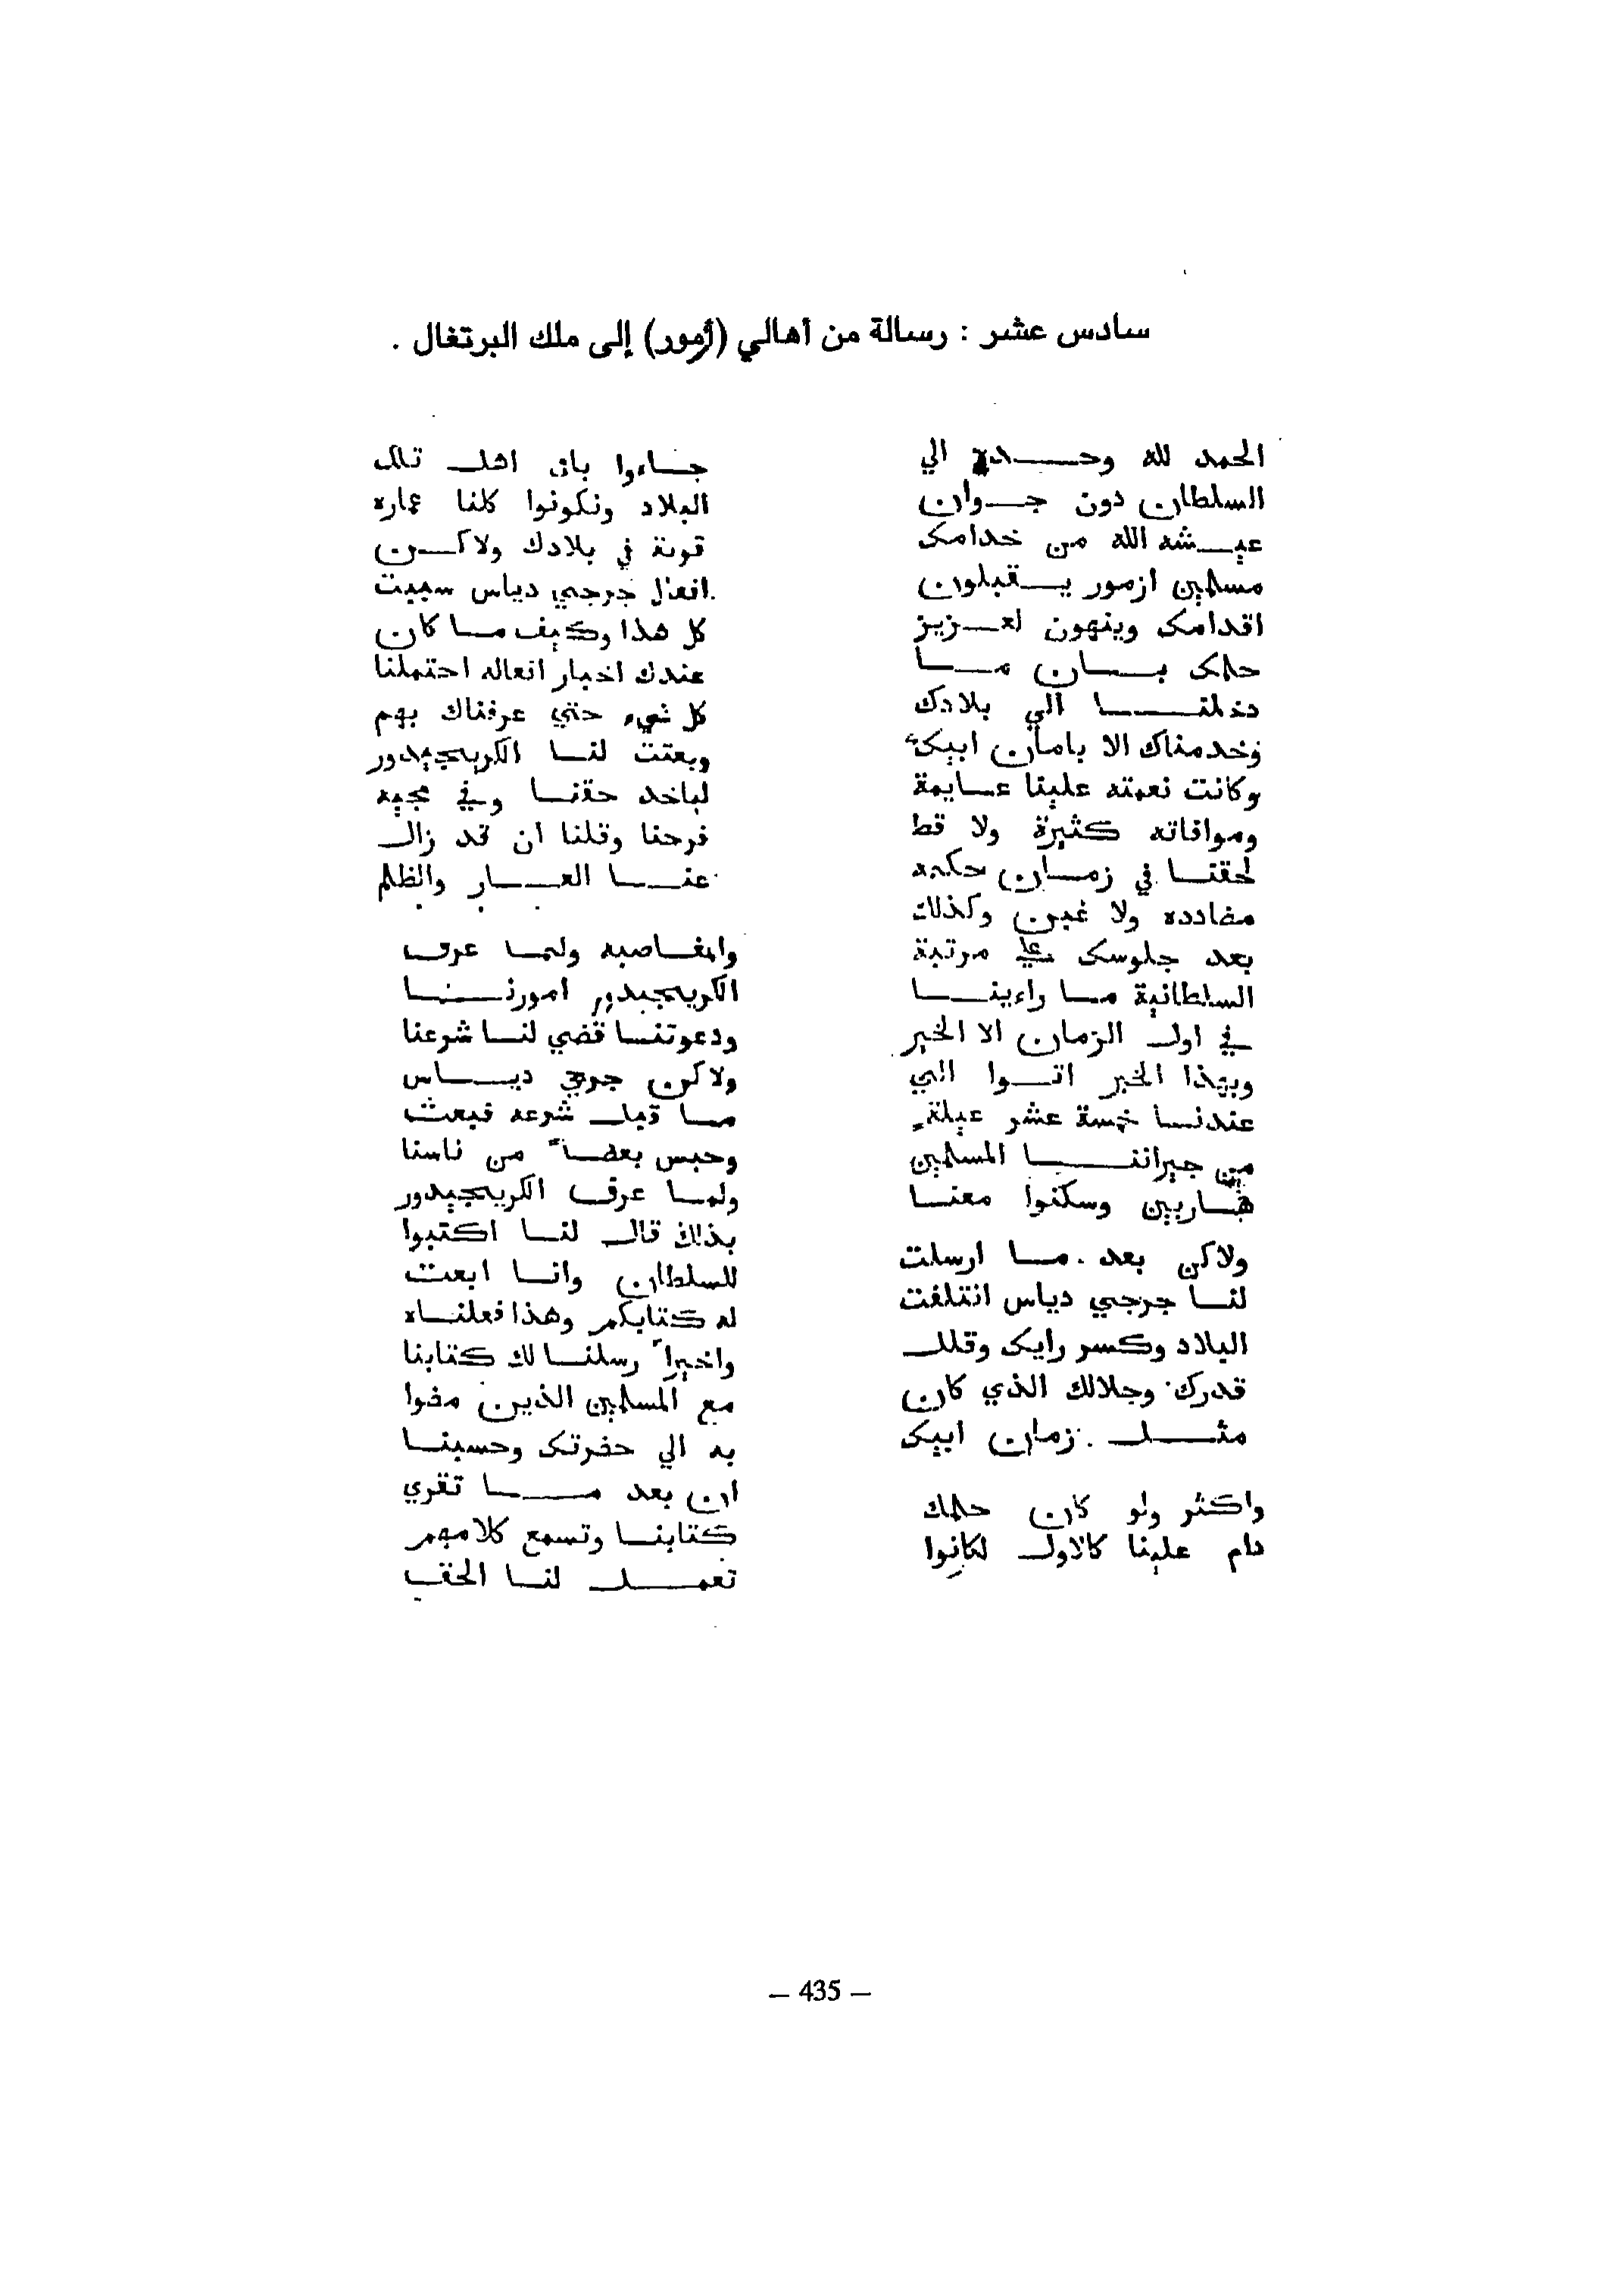 سادس عشر : رسالة من أهالي (أزمور) إلى ملك البرتغال .
الحمد لله وحده الي
السلطان دون جوان
عيشه الله من خدامك
مسلمين ازمور يقبلون
اقدامك وينهون لعزيز
حلمك بان ما
دخلنا الي بلادك
وخدمناك الا بامان ابيك
وكانت نعمته علينا عايمة
وموافاته كثيرة ولا قط
لحقنا في زمان حكمه
مضادده ولا غبن وكذلك
بعد جلوسك علي مرتبة
السلطانية ما راءينا
في اول الزمان الا الخير
وبهذا الخبر اتوا الي
عندنا خمسة عشر عيلة
من جيراننا المسلمين
هاربين وسكنوا معنا
ولاكن بعد ما ارسلت
لنا جرجي دياس انتلفت
البلاد وكسر رايك وقلل
قدرك وجلالك الذي كان
مثل زمان ابيك
واكثر ولو كان حلمك
دام علينا كالاول لكانوا
جاءوا باقي اهل تلك
البلاد ونكونوا كلنا عماره
قوية في بلادك ولاكن
افعال جرجي دياس سببت
كل هذا وكيف ما كان
عندك اخبار افعاله احتملنا
كل شيء حتي عرفناك بهم
وبعتت لنا الكريجيدور
لياخد حقنا وفي مجيه
فرحنا وقلنا ان قد زال
عنا العار والظلم
والمغاصبه ولما عرف
الكريجيدور امورنا
ودعوتنا قضي لنا شرعنا
ولاكن جرجي دياس
ما قبل شرعه فبعث
وحبس بعضاً من ناسنا
ولما عرف الكريجيدور
بذلك قال لنا اكتبوا
للسلطان وانا ابعث
له كتابكم وهذا فعلناه
واخيراً رسلنا لك كتابنا
مع المسلمين الذين مضوا
به الي حضرتك وحسبنا
ان بعد ما تقري
كتابنا وتسمع كلامهم
تعمل لنا الحق
– 435 –